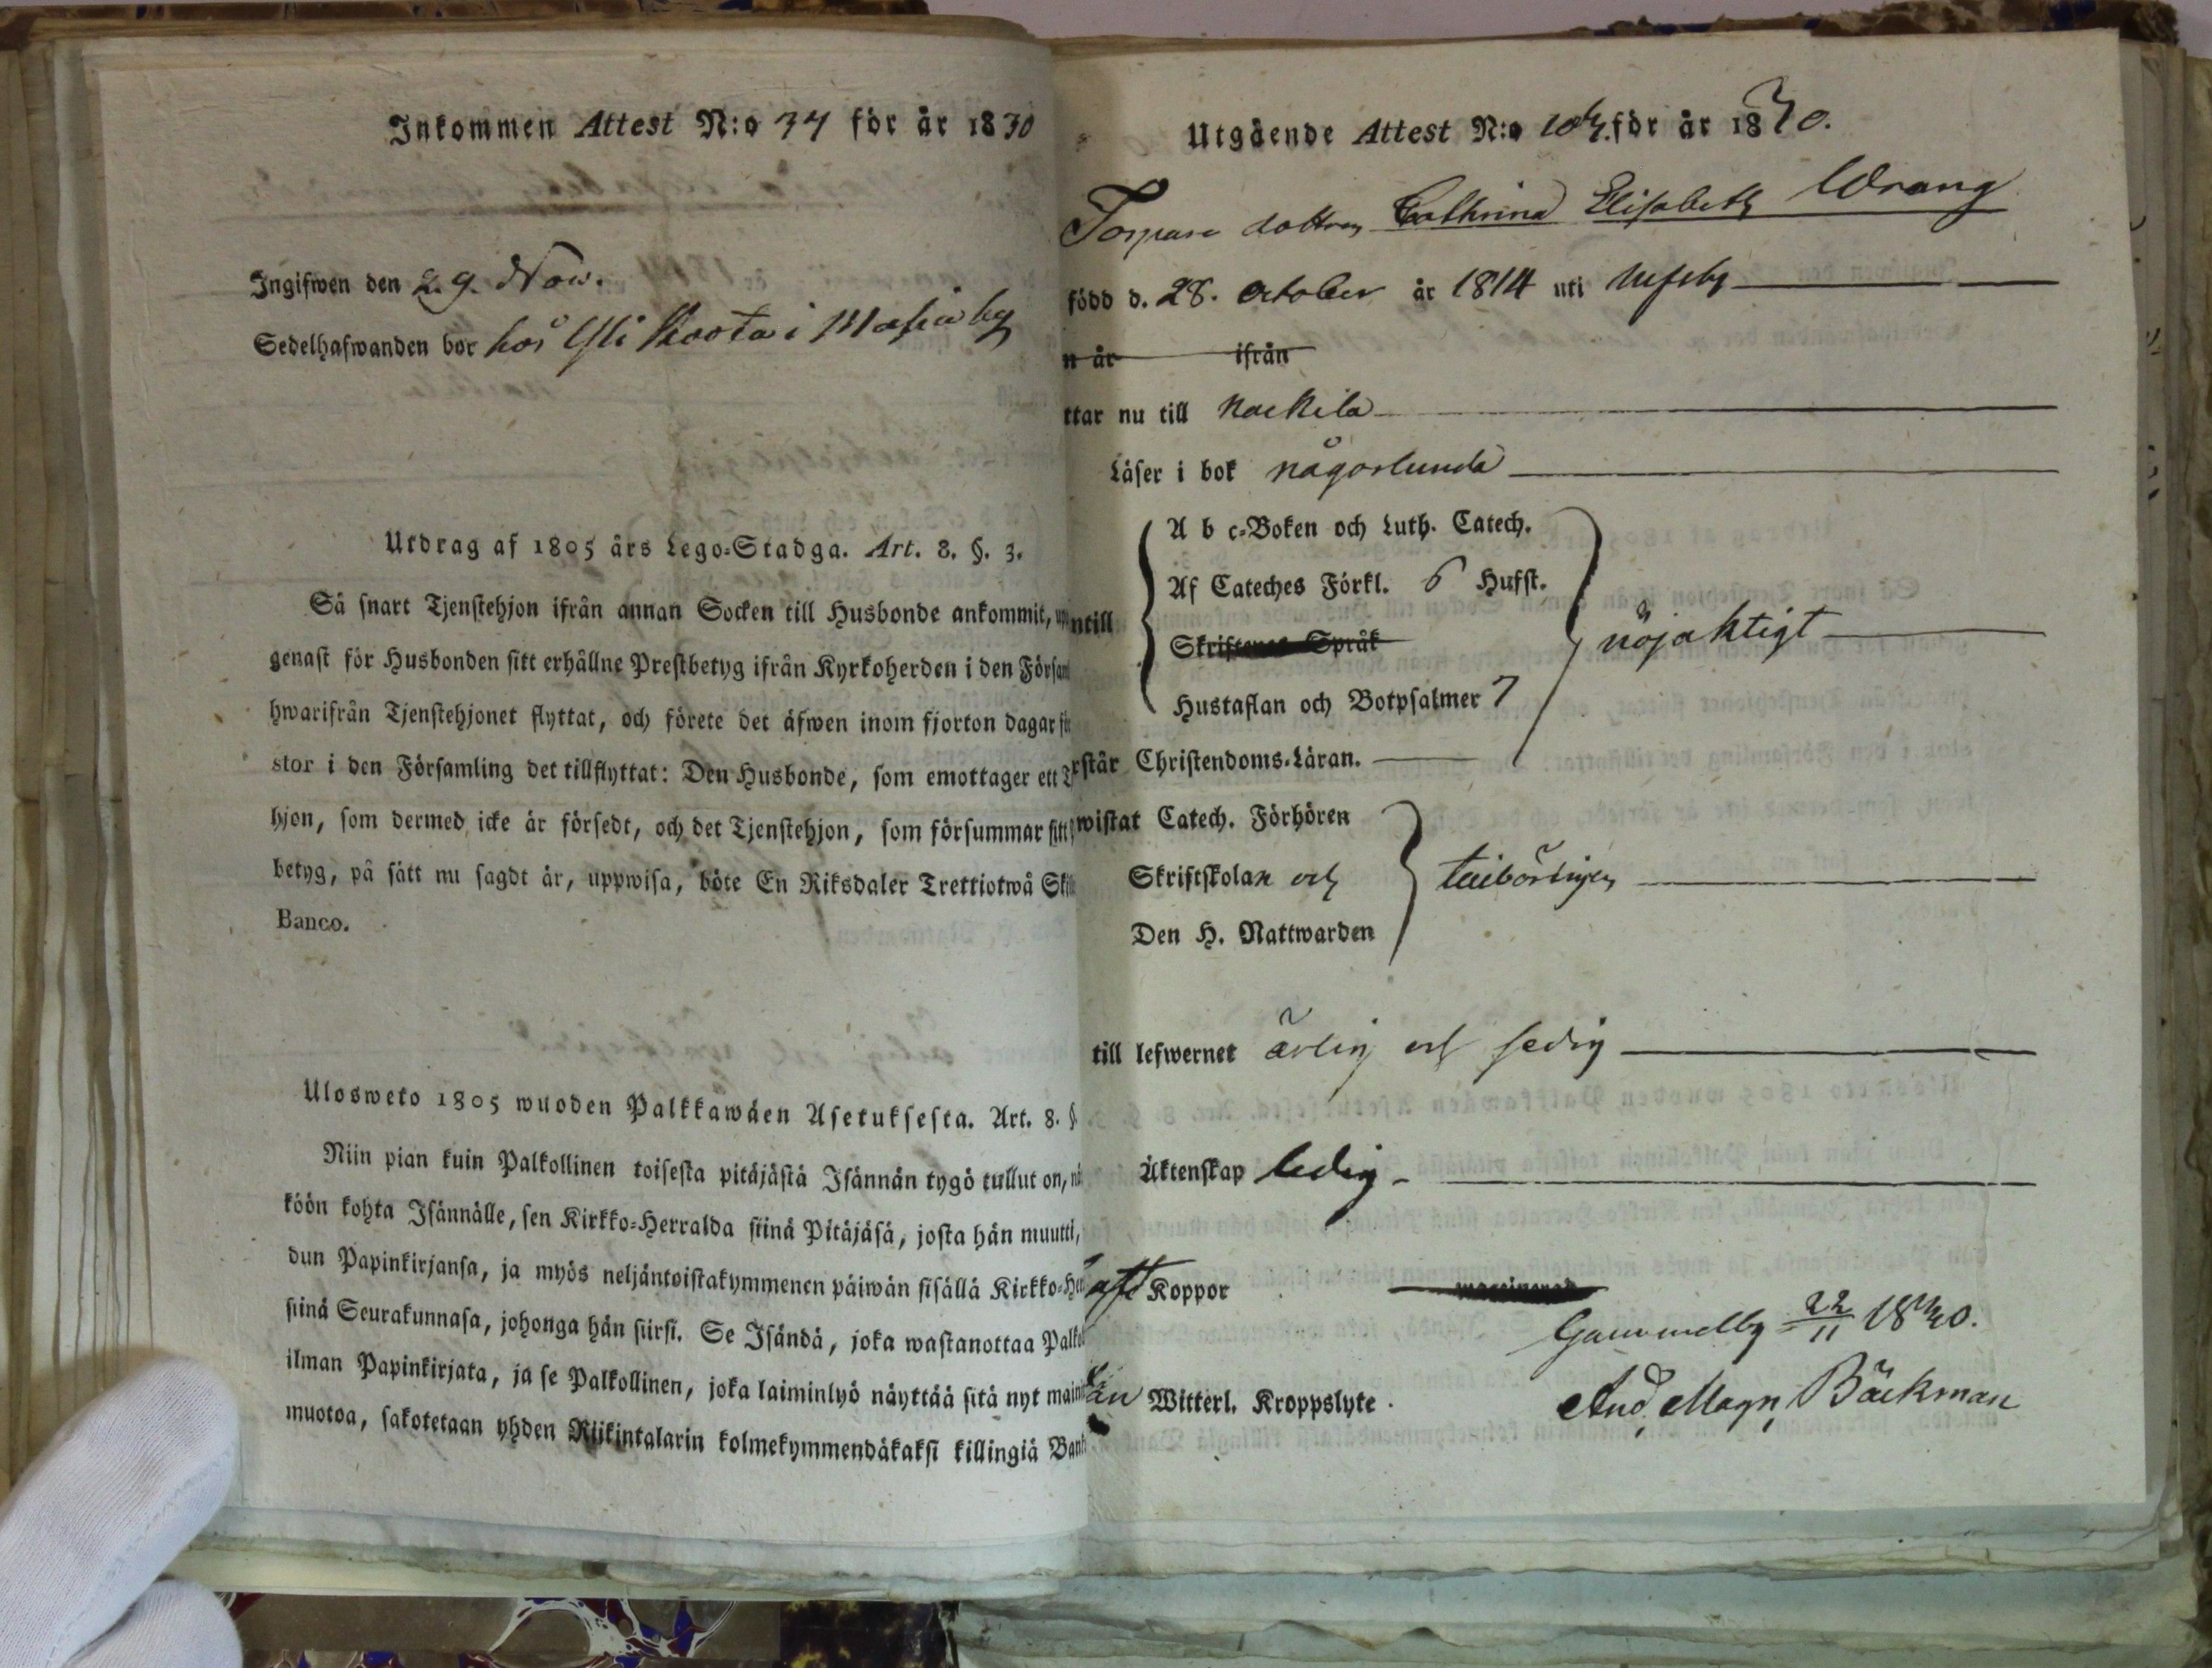 Inkommen Attest N:o 34 för år 1830
Ingifwen den 29. Nov.
Sedelhafwanden bor hos i by
Utdrag af 1805 års Lego-Stadga. Art. 8. §. 3.
Så snart Tjenstehjon ifrån annan Socken till Husbonde ankommit,
genast för Husbonden sitt erhållne Prestbetyg ifrån Kyrkoherden i den Försam
hwarifrån Tjenstehjonet flyttat, och förete det äfwen inom fjorton dagar
stor i den Församling det tillflyttat: Den Husbonde, som emottager ett
hjon, som dermed icke är försedt, och det Tjenstehjon, som försummar sitt
betyg, på sätt nu sagdt är, uppwisa, böte En Riksdaler Trettiotwå
Banco.
Ulosweto 1805 wuoden Palkkawäen Asetuksesta. Art. 8. §
Niin pian kuin Palkollinen toisesta pitäjästä Isännän tygö tullut on,
köön kohta Isännälle, sen Kirkko-Herralda siinä Pitäjäsä, josta hän muutti,
dun Papinkirjansa, ja myös neljäntoistakymmenen päiwän sisällä Kirkko-He
siinä Seurakunnasa, johonga hän siirsi. Se Isändä, joka wastanottaa Palko
ilman Papinkirjata, ja se Palkollinen, joka laiminlyö näyttää sitä nyt main
muotoa, sakotetaan yhden Riikintalarin kolmekymmendäkaksi killingiä Ban
Utgående Attest N:o för år 1830.
Torpare dottren Cathrina Elisabeth Wrang
född d. 28. October år 1814 uti Ulfsby
n år ifrån
ttar nu till Nackila
Läser i bok någorlunda
A b c-Boken och Luth. Catech.
Af Cateches Förkl. 6 Hufst.
ntill
Skriftenes Språk
nöjaktigt
Hustaflan och Botpsalmer 7
rstår Christendoms-Läran.
wistat Catech. Förhören
Skriftskolan och
tilbörligen
Den H. Nattwarden
till lefwernet ärlig och sedig
Äktenskap ledig
aft Koppor
Gammelby 22/11 1830.
Witterl. Kroppslyte.
And. Magn. Bäckman